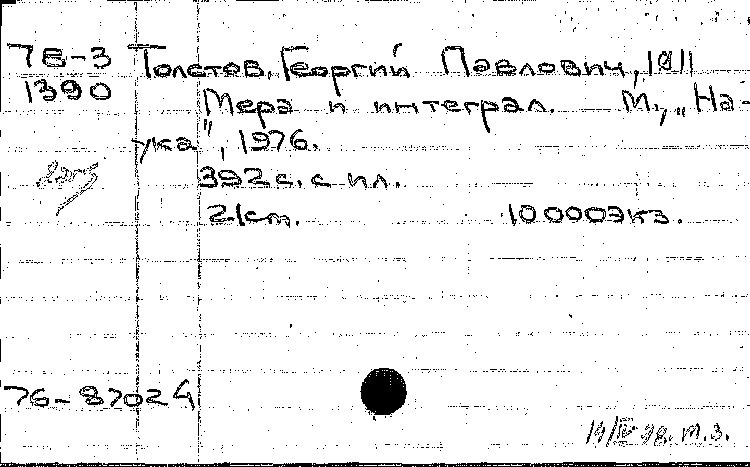 7Е-3 Толстов, Георгий Павлович, 1911
1390 Мера и интеграл. М., „На-
ука", 1976.
392 с. с ил.
21 см. 10 000 экз.
76-87024